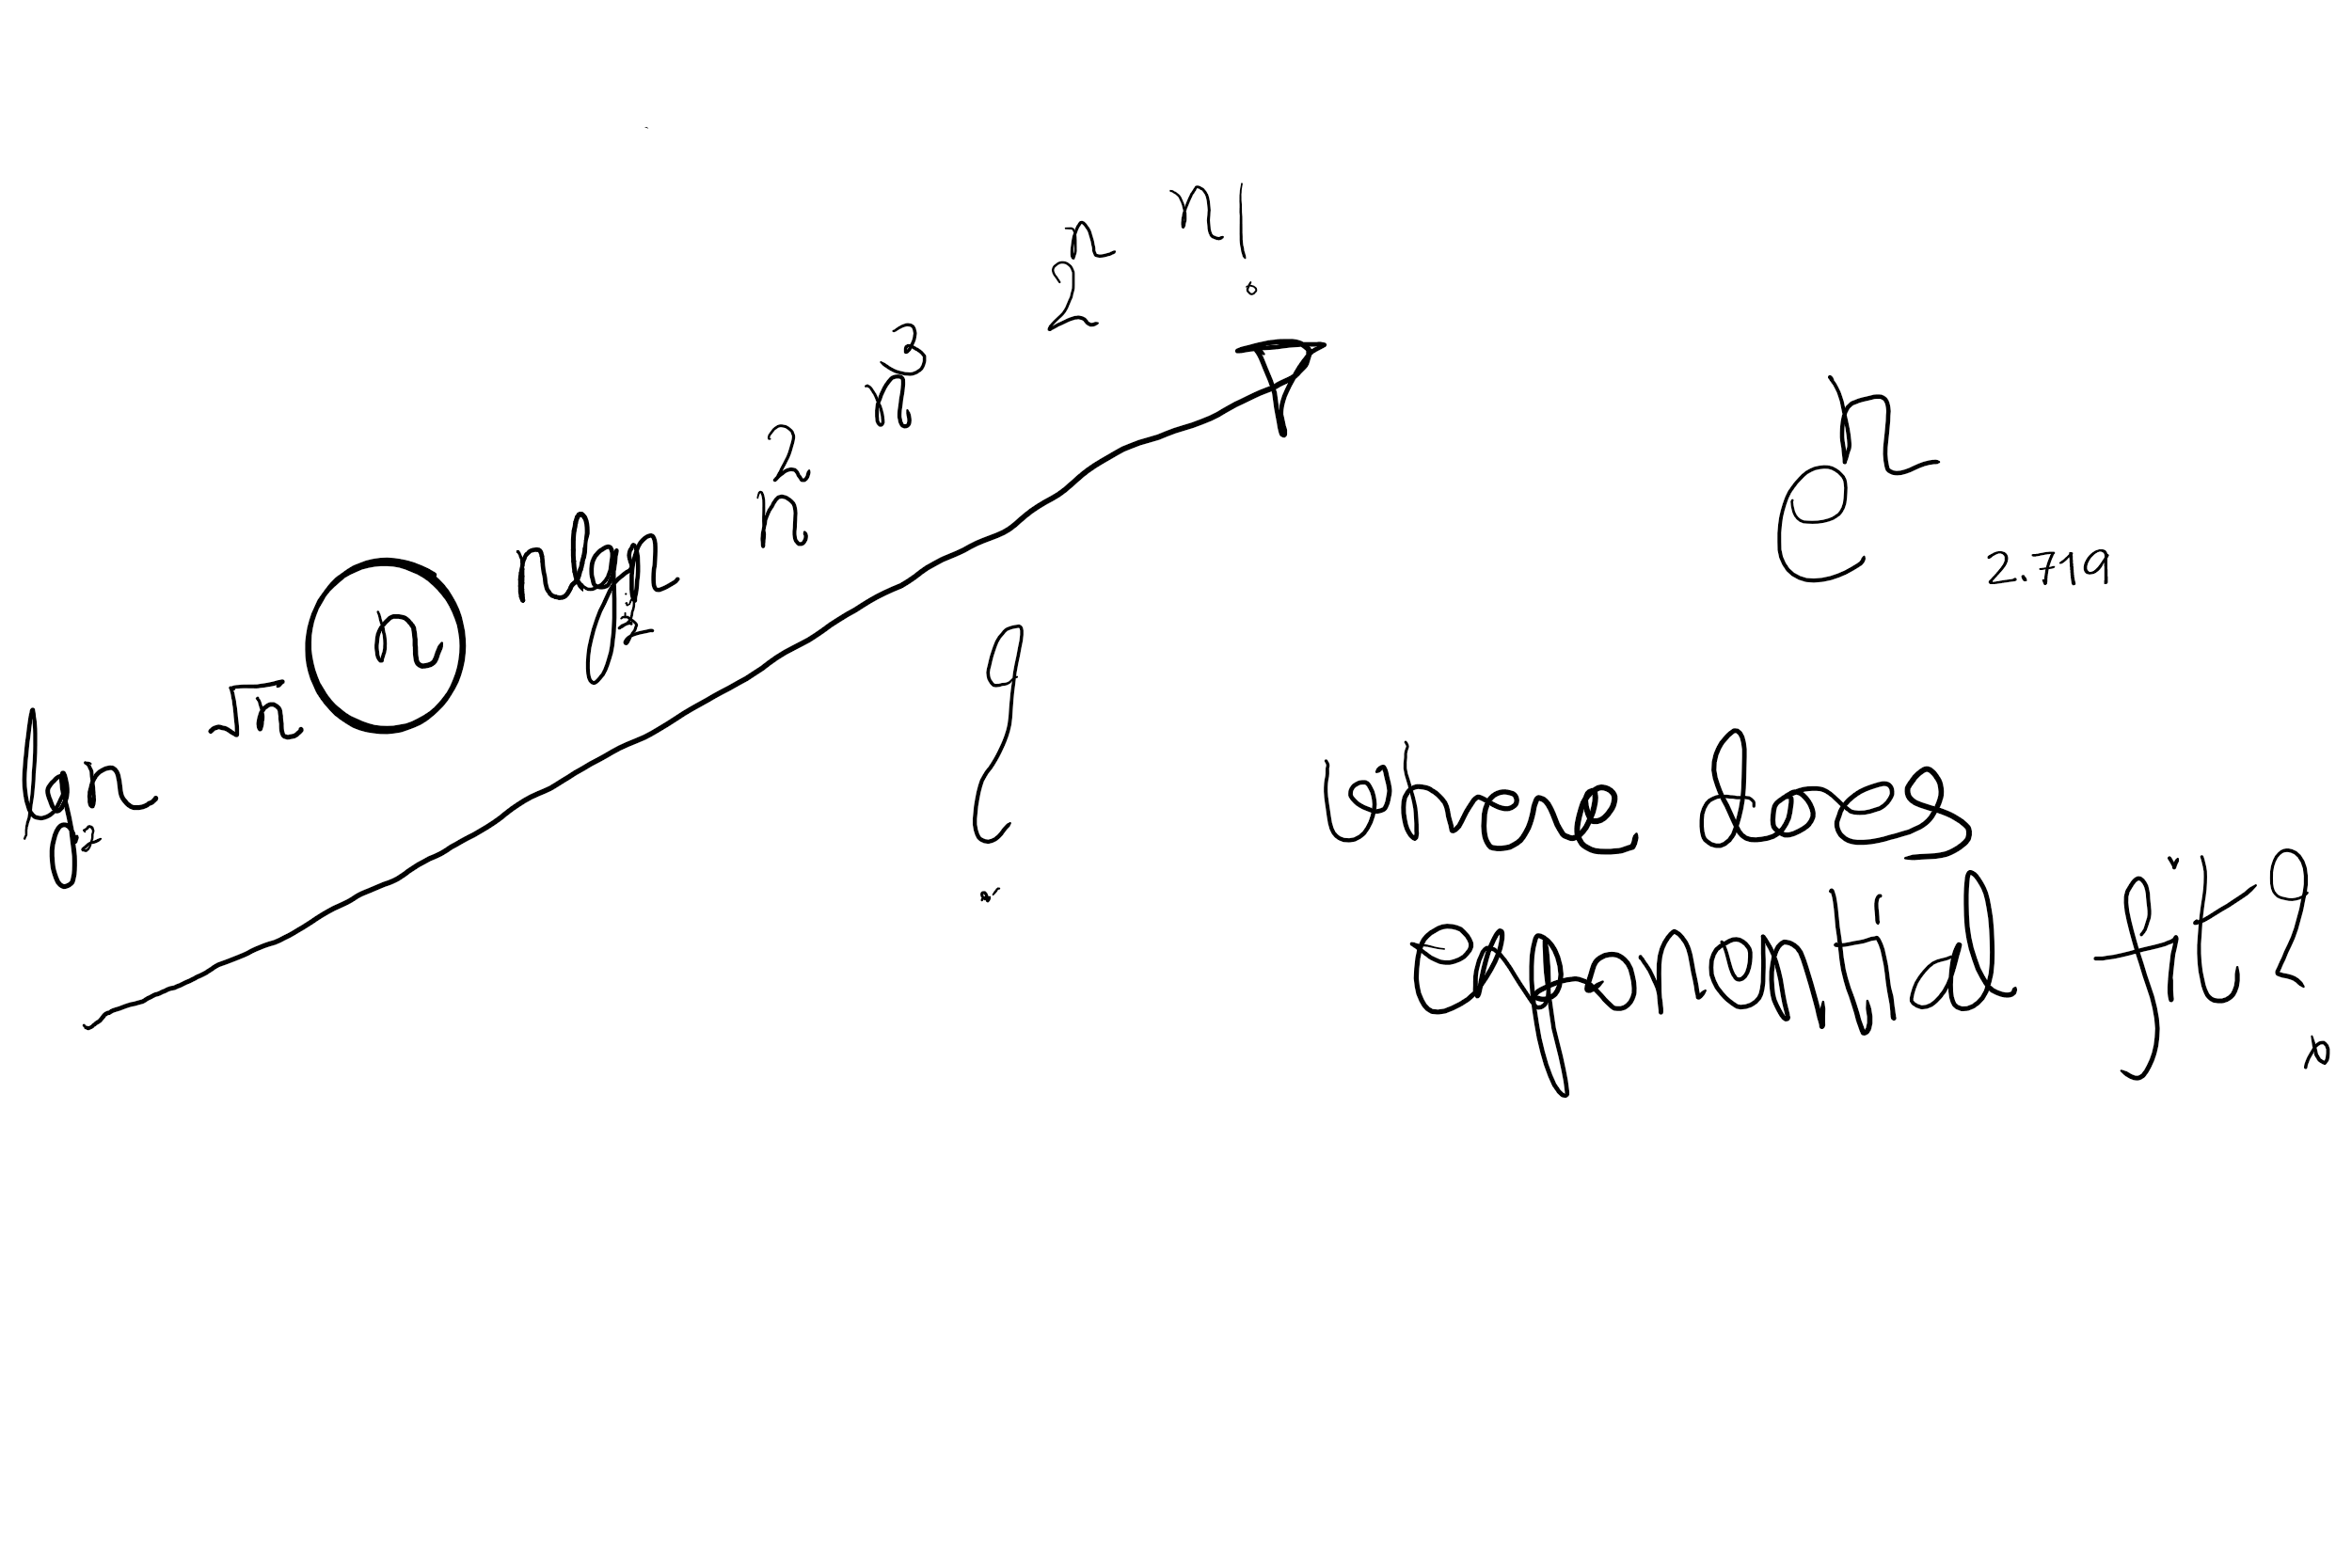 log₂n √n n nlog₂n n² n³ 2ⁿ n!
?
eⁿ
2.719
Where does
exponential fit?